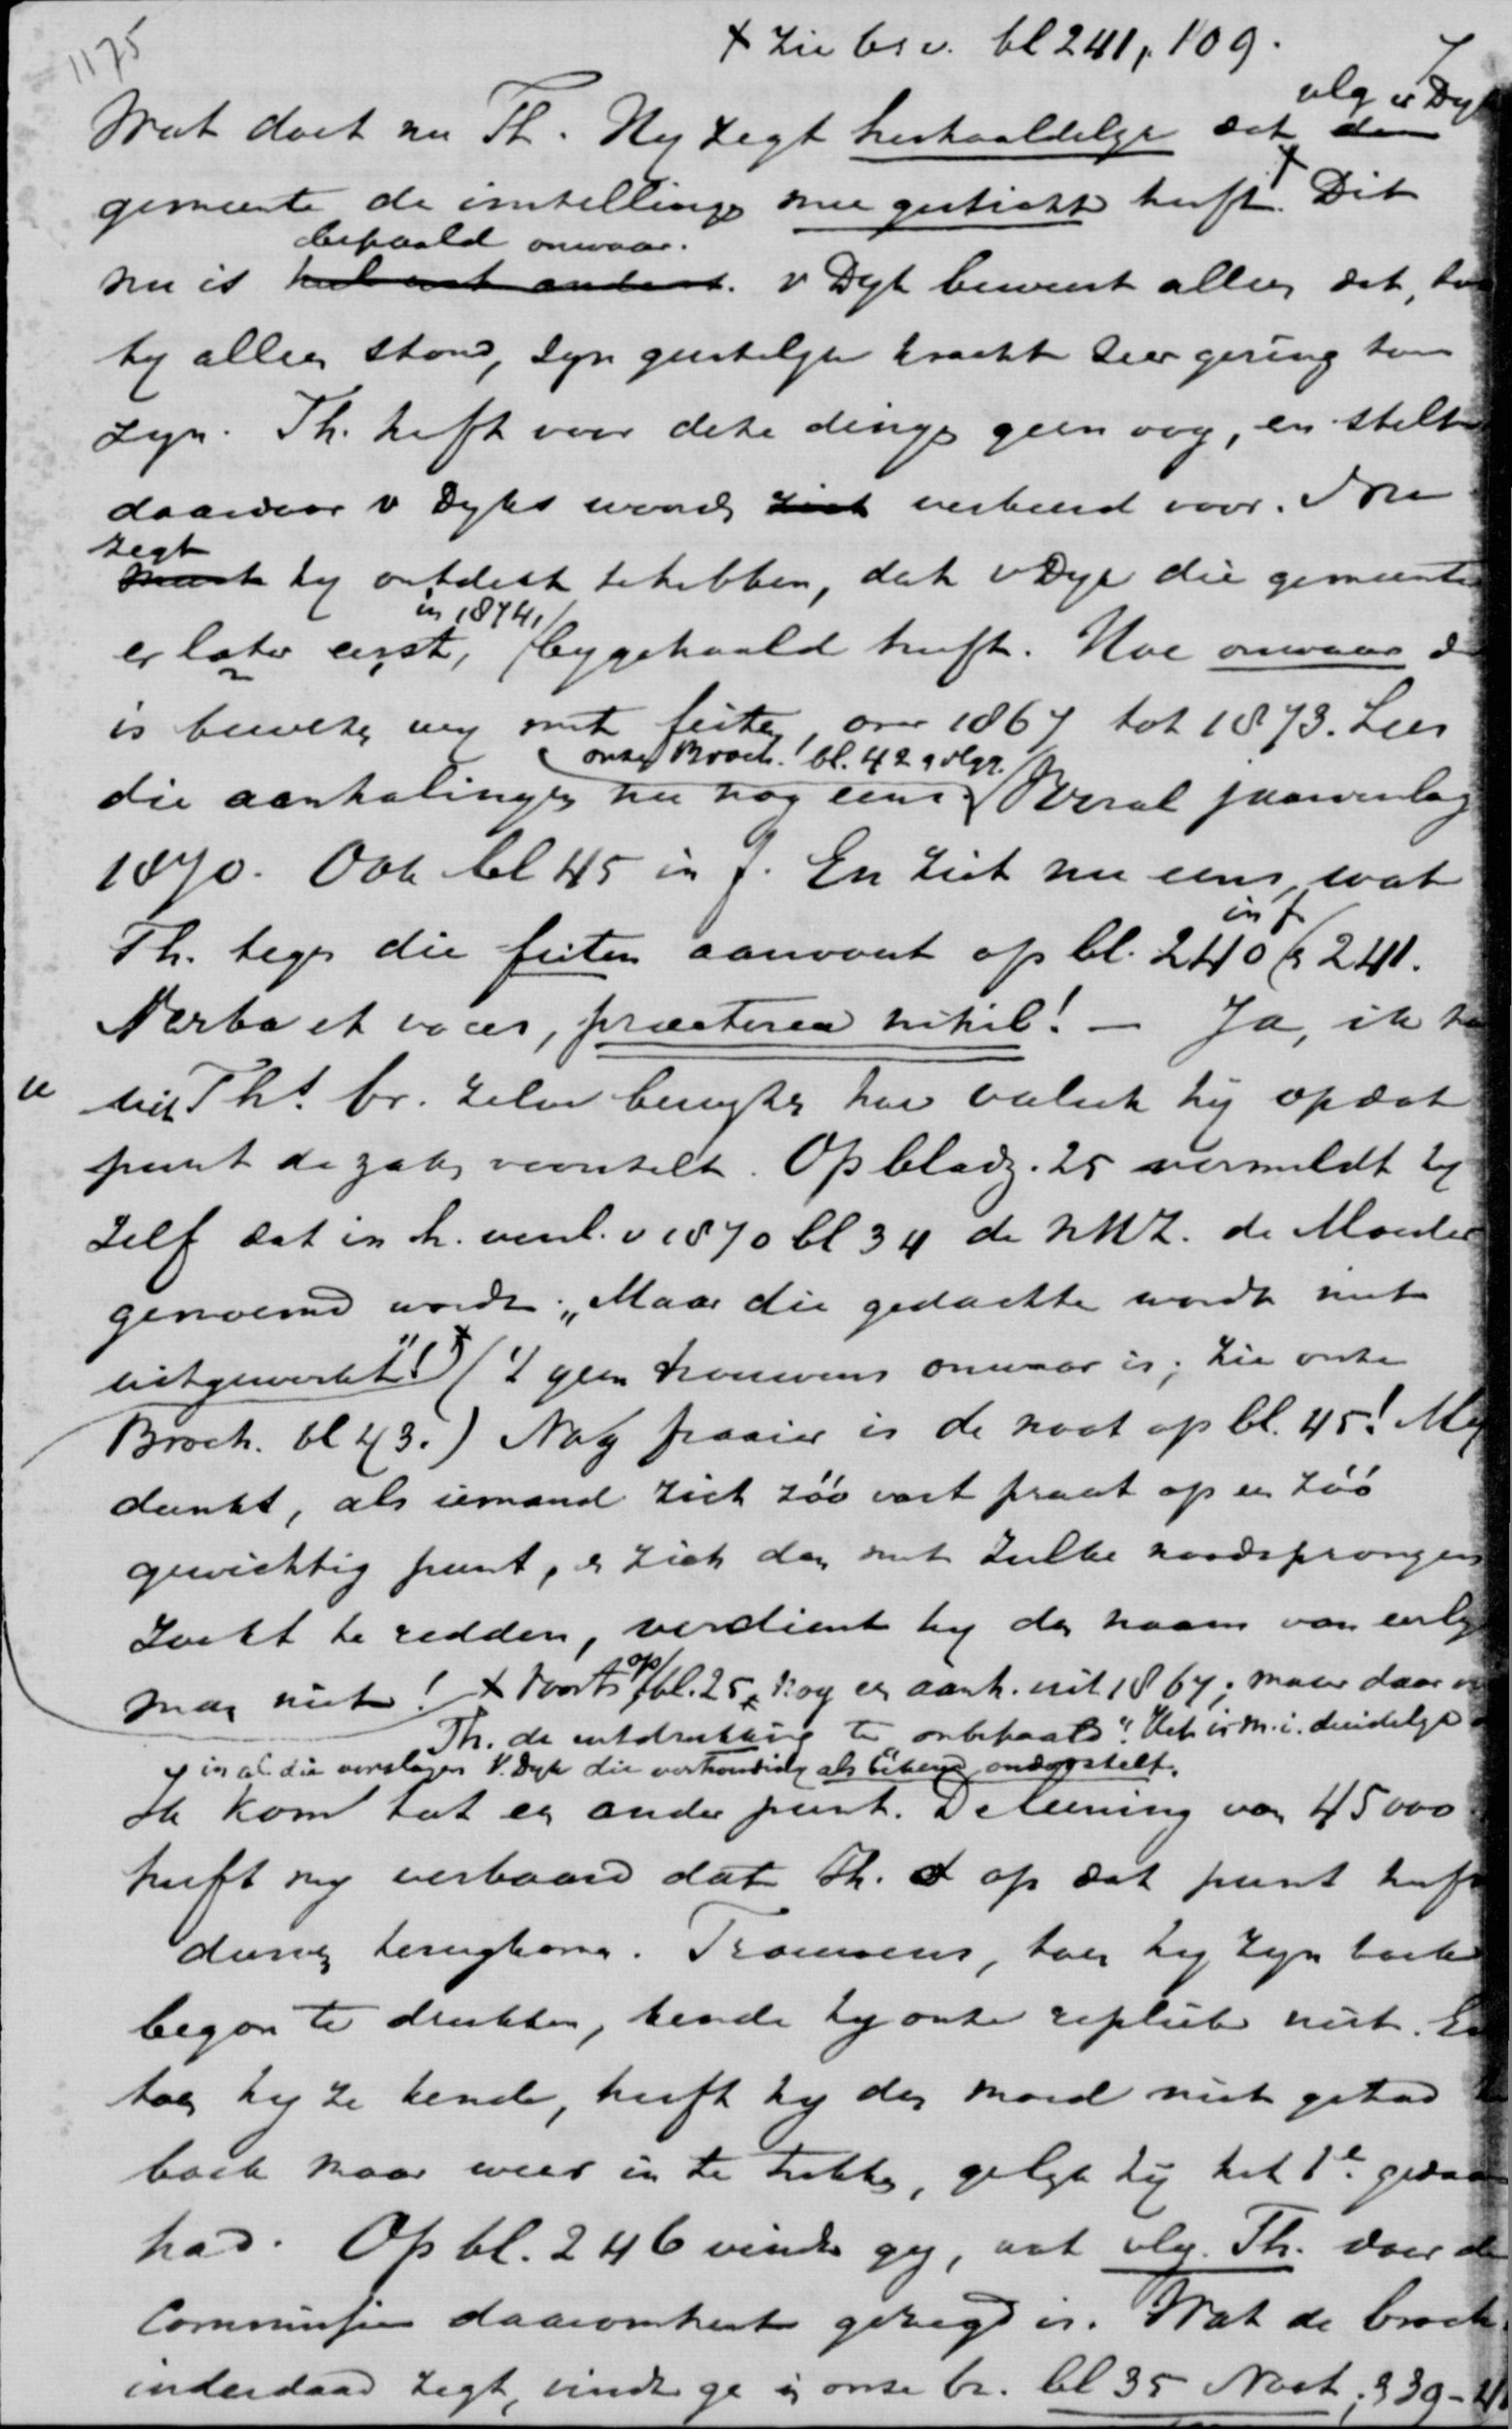 1175
x zie bsv. bl 241, 109.
vlg v Dyk
Wat doet nu Th. Hy zegt herhaaldelyk dat de
gemeente de instellingen mee gesticht heeft. x Dit
bepaald onwaar.
nu is heel wat anders. v Dyk beweert alleen dat, toen
hy alleen stond, zyn geestelyke kracht zeer gering zou
zyn. Th. heeft voor deze dingen geen oog, en stelt
daardoor v Dyks woorden verkeerd voor. Nu
zegt
hy ontdekt te hebben, dat v Dyk die gemeente
in 1874,
er later eerst, bygehaald heeft. Hoe onwaar dit
is bewezen wy met feiten, over 1867 tot 1873. Lees
onze Broch.! bl. 42 vlgg.
die aanhalingen nu nog eens. Vooral jaarverslag
1870. Ook bl 45 in f. En ziet nu eens, wat
in f
Th. tegen die feiten aanvoert op bl. 240 en 241.
Verba et voces, praeterea nihil! — Ja, ik kan
uit Th's br. zelve bewyzen hoe valsch hy op dat
punt de zaken voorstelt. Op bladz. 25 vermeldt hy
zelf dat in h. versl. v 1870 bl 34 de NHZ. de Moeder
genoemd wordt. „Maar die gedachte wordt niet
uitgewerkt"! x ('t geen trouwens onwaar is; zie onze
Broch. bl 43.) Nog fraaier is de noot op bl. 45! My
dunkt, als iemand zich zóó vast praat op een zóó
gewichtig punt, en zich dan met zulke noodsprongen
zoekt te redden, verdient hy den naam van eerlyk
man niet! x Voorts op bl. 25 nog een aanh. uit 1867; maar daar
Th. de uitdrukking te onbepaald". Het is m.i. duidelyk
in al die verslagen v. Dyk die verhouding als bekend onderstelt.
Ik kom tot een ander punt. De leening van 45000
heeft my verbaasd dat Th. op dat punt heeft
durven terugkomen. Trouwens, toen hy zyn boek
begon te drukken, kende hy onze repliek niet. En
toen hy ze kende, heeft hy den moed niet gehad
boek maar weer in te trekken, gelyk hy het 1e. gedaan
had. Op bl. 246 vindt gy, wat vlg. Th. door de
Commissie daaromtrent gezegd is. Wat de broch.
inderdaad zegt, vindt ge in onze br. bl 35 Noot, § 39-41